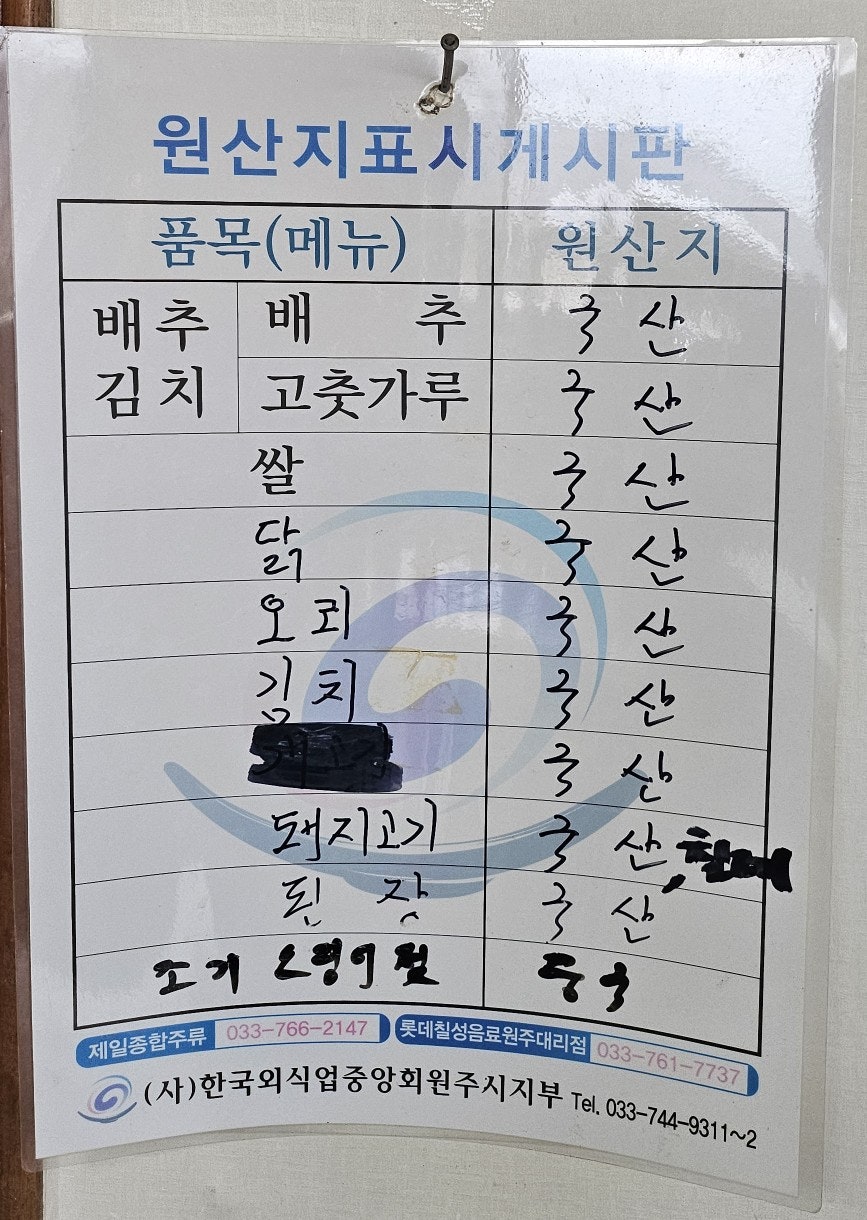 원산지표시게시판
품목(메뉴) 원산지
배추김치 배추 국산
고춧가루 국산
쌀 국산
닭 국산
오리 국산
김치 국산
국산
돼지고기 국산, 칠레
된장 국산
조기 중국
제일종합주류 033-766-2147 롯데칠성음료원주대리점 033-761-7737
(사)한국외식업중앙회원주시지부 Tel. 033-744-9311~2